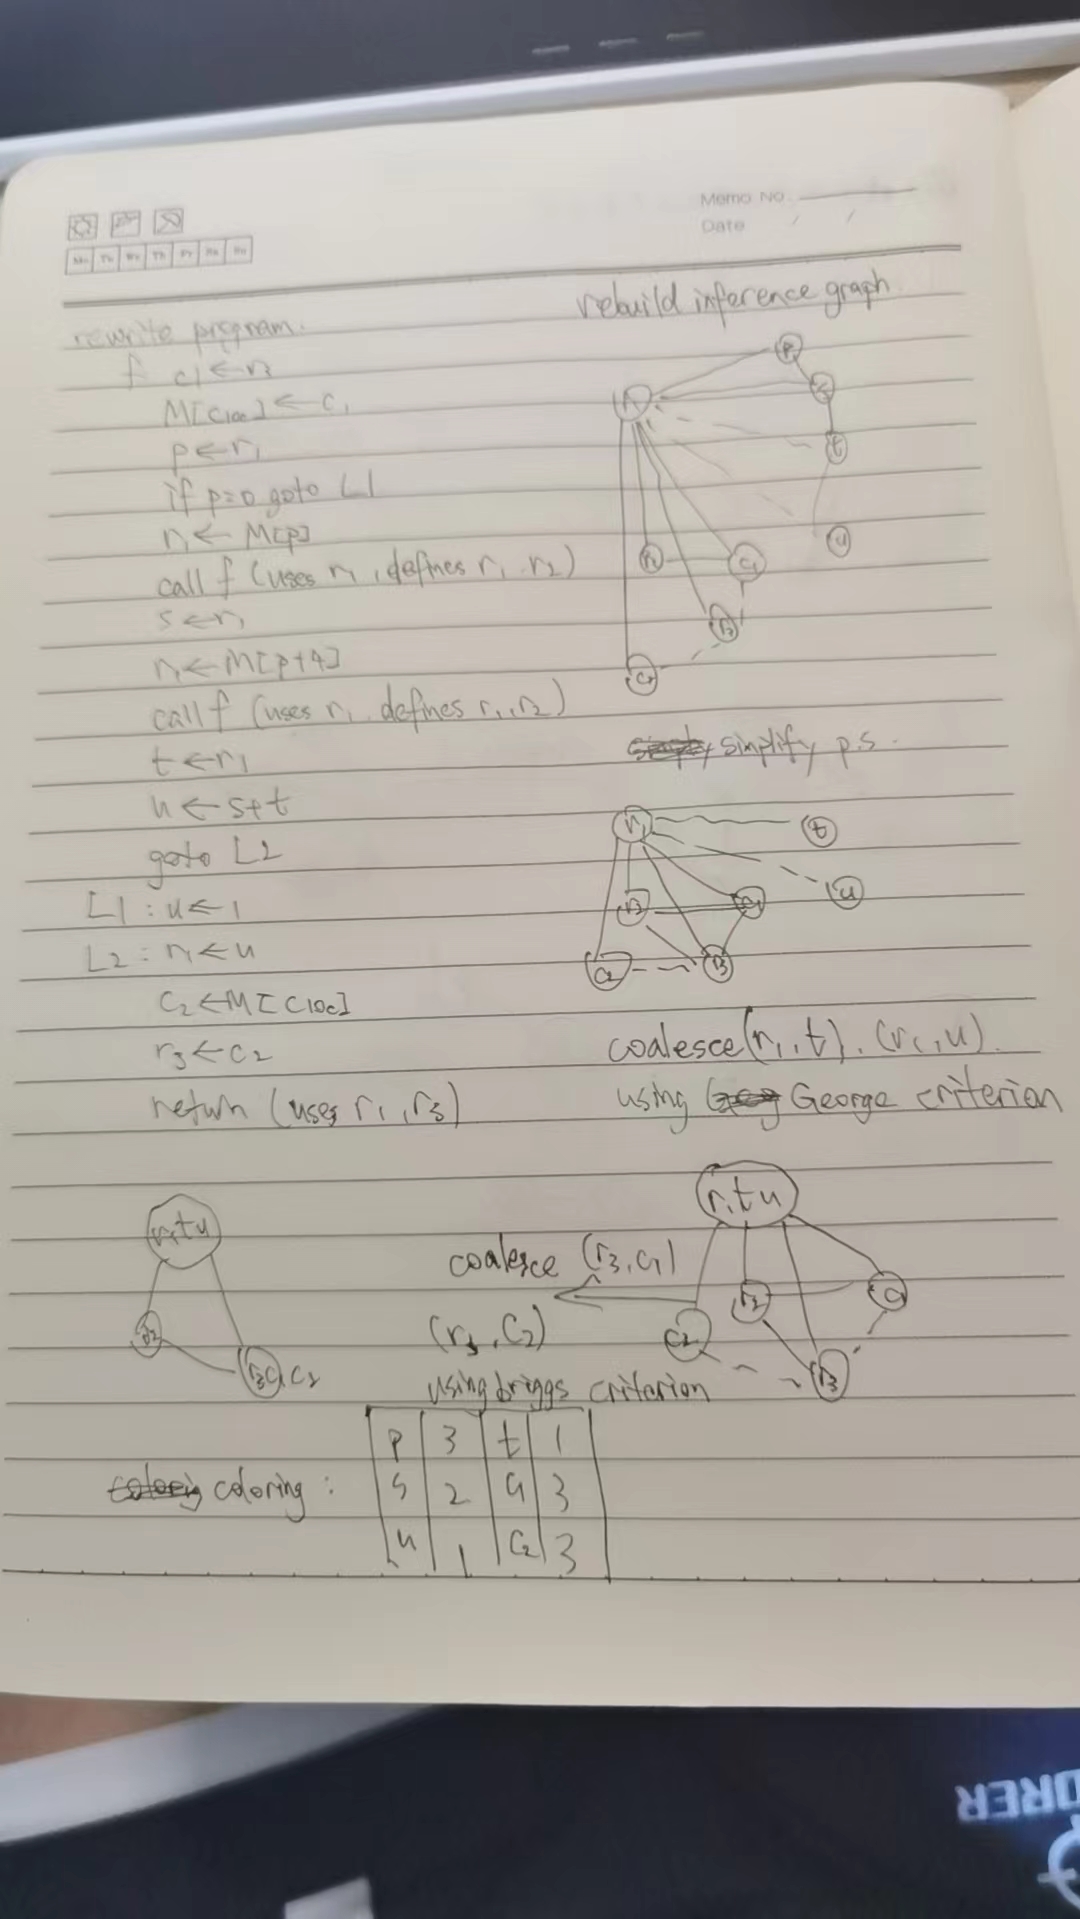 Memo No.
Date / /
Mo Tu We Th Fr Sa Su
rewrite program.
f c1 ← r3
M[Cloc] ← c1
p ← r1
if p=0 goto L1
r1 ← M[p]
call f (uses r1, defines r1, r2)
s ← r1
r1 ← M[p+4]
call f (uses r1, defines r1, r2)
t ← r1
u ← s+t
goto L2
L1: u ← 1
L2: r1 ← u
C2 ← M[Cloc]
r3 ← c2
return (uses r1, r3)
rebuild inference graph.
r1
p
s
t
u
r2
C1
r3
C2
simplify p.s.
r1
t
r2
C1
u
C2
r3
coalesce (r1, t), (r1, u).
using George criterion
r1tu
r2
r3C1C2
coalesce (r3, C1)
(r3, C2)
using briggs criterion
r1tu
r2
C1
C2
r3
coloring:
p 3 t 1
s 2 C1 3
u 1 C2 3